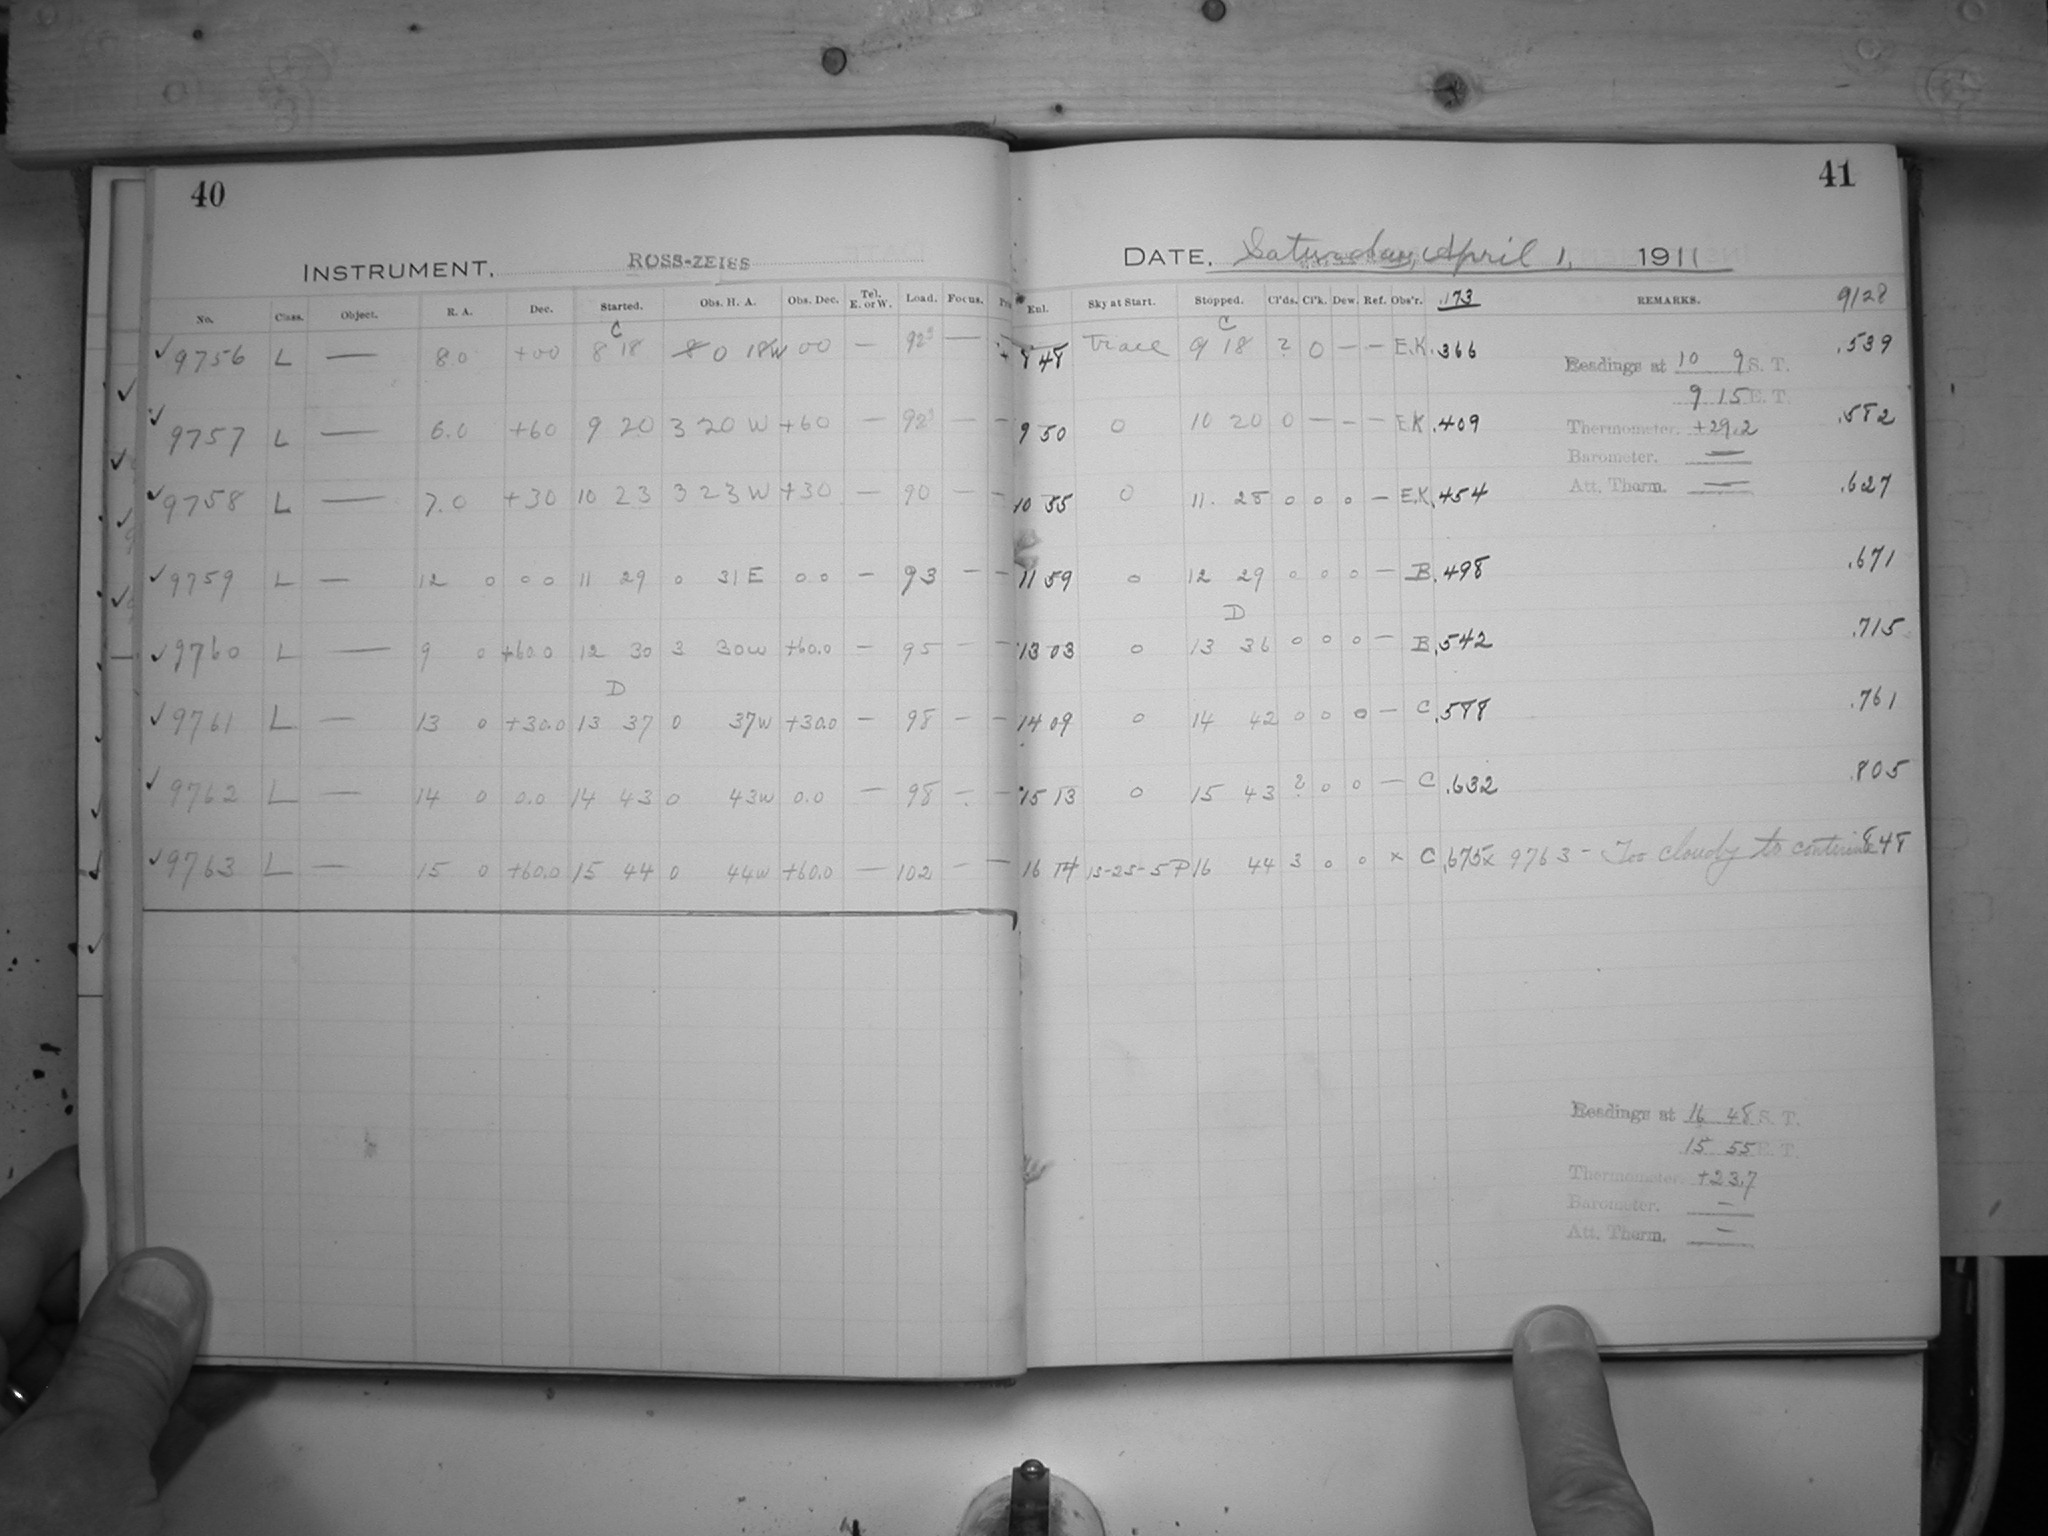 40
41
INSTRUMENT. ROSS-ZEISS
DATE. Saturday, April 1, 1911
No. Class. Object. R. A. Dec. Started. Obs. H. A. Obs. Dec. Tel. E. or W. Load. Focus. Exl. Sky at Start. Stopped. Cl'ds. Cl'k. Dew. Ref. Obs'r. .173 REMARKS. 9128
C C
✓ 9756 L — 8 0 +00 8 18 0 18W 00 — 92³ — 8 48 trace 9 18 ? 0 — — E.K. .366 .539
Readings at 10 9 S. T.
9 15 E. T.
✓ 9757 L — 6.0 +60 9 20 3 20 W +60 — 92³ — — 9 50 0 10 20 0 — — — EK .409 .582
Thermometer. +29.2
Barometer. —
✓ 9758 L — 7.0 +30 10 23 3 23 W +30 — 90 — — 10 55 0 11. 25 0 0 0 — E.K. .454 .627
Att. Therm. —
✓ 9759 L — 12 0 0 0 0 11 29 0 31 E 0 0 — 93 — — 11 59 0 12 29 0 0 0 — B .498 .671
D
✓ 9760 L — 9 0 +60.0 12 30 3 30W +60.0 — 95 — — 13 03 0 13 36 0 0 0 — B .542 .715
D
✓ 9761 L — 13 0 +30.0 13 37 0 37W +30.0 — 98 — — 14 09 0 14 42 0 0 0 — C .588 .761
✓ 9762 L — 14 0 0.0 14 43 0 43W 0.0 — 98 — — 15 13 0 15 43 ? 0 0 — C .632 .805
✓ 9763 L — 15 0 +60.0 15 44 0 44W +60.0 — 102 — — 16 14 15-25-5 P 16 44 3 0 0 × C .675 × 9763 - Too cloudy to continue .848
Readings at 16 48 S. T.
15 55 E. T.
Thermometer. +23.7
Barometer. —
Att. Therm. —